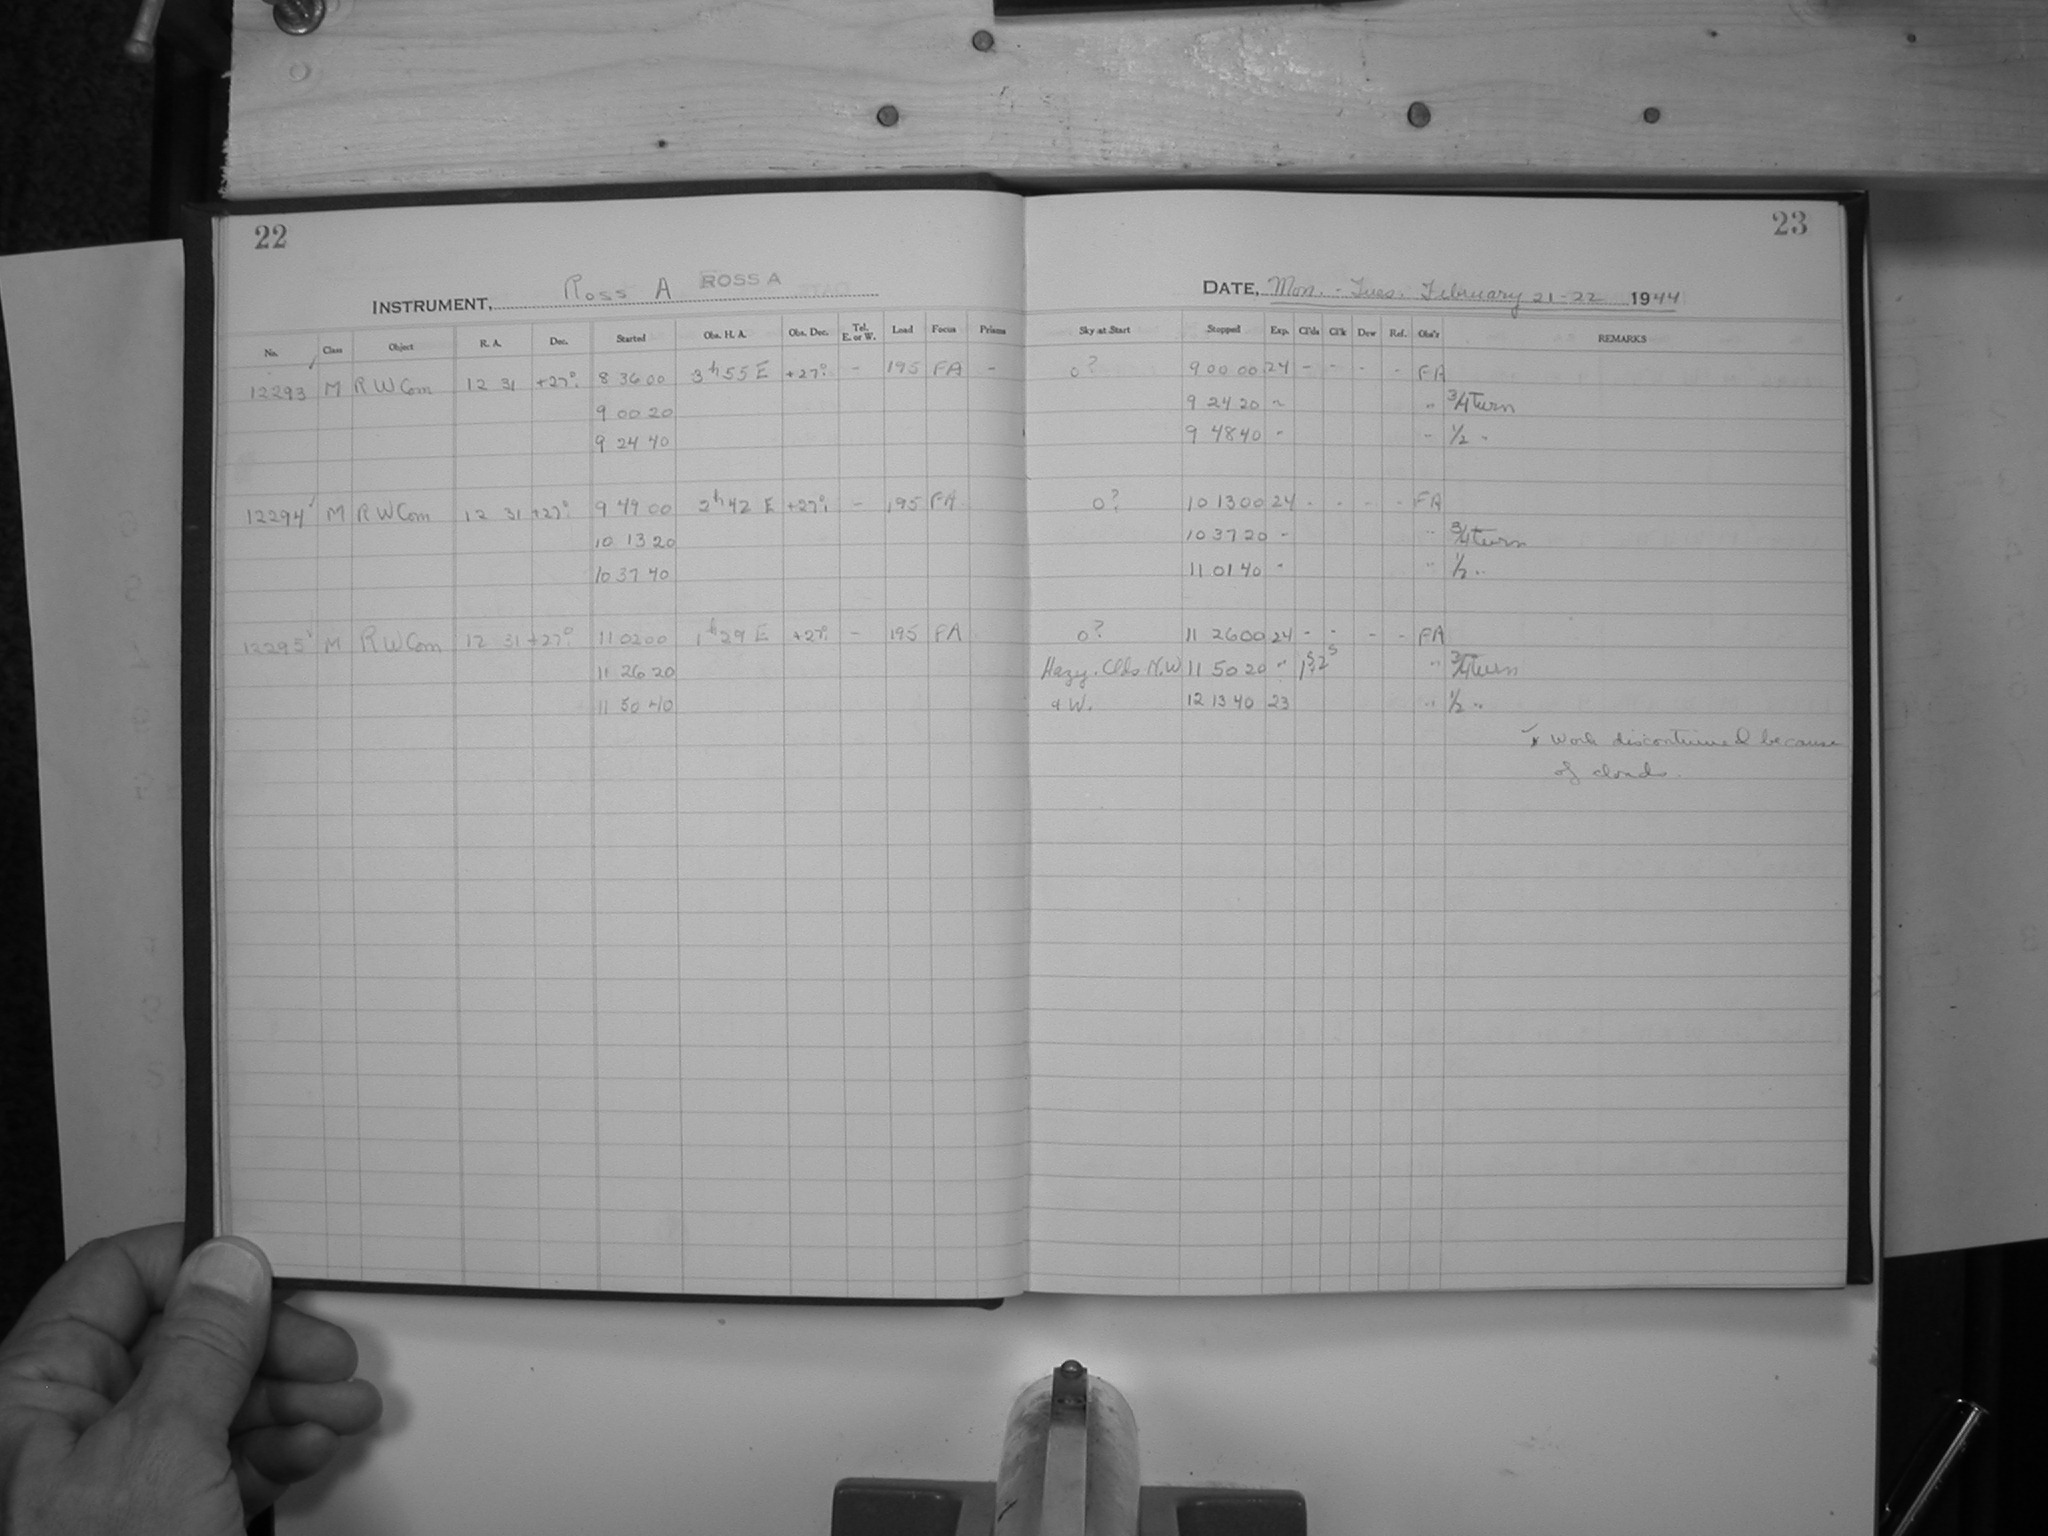 22
INSTRUMENT, Ross A ROSS A
No. Class Object R. A. Dec. Started Obs. H. A. Obs. Dec. Tel. E. or W. Load Focus Prisms
12293 M R W Com 12 31 +27° 8 36 00 3h 55 E +27° - 195 FA -
9 00 20
9 24 40
12294 M R W Com 12 31 +27° 9 49 00 2h 42 E +27° - 195 FA
10 13 20
10 37 40
12295 M R W Com 12 31 +27° 11 02 00 1h 29 E +27° - 195 FA
11 26 20
11 50 40
23
DATE, Mon. - Tues. February 21-22 1944
Sky at Start Stopped Exp. Cl'ds Cl'k Dew Ref. Obs'r REMARKS
0? 9 00 00 24 - - - - FA
9 24 20 " " 3/4 turn
9 48 40 " " 1/2 "
0? 10 13 00 24 - - - - FA
10 37 20 " " 3/4 turn
11 01 40 " " 1/2 "
0? 11 26 00 24 - - - - FA
Hazy. Clds N.W 11 50 20 " " 3/4 turn
& W. 12 13 40 23 " 1/2 "
Work discontinued because
of clouds.